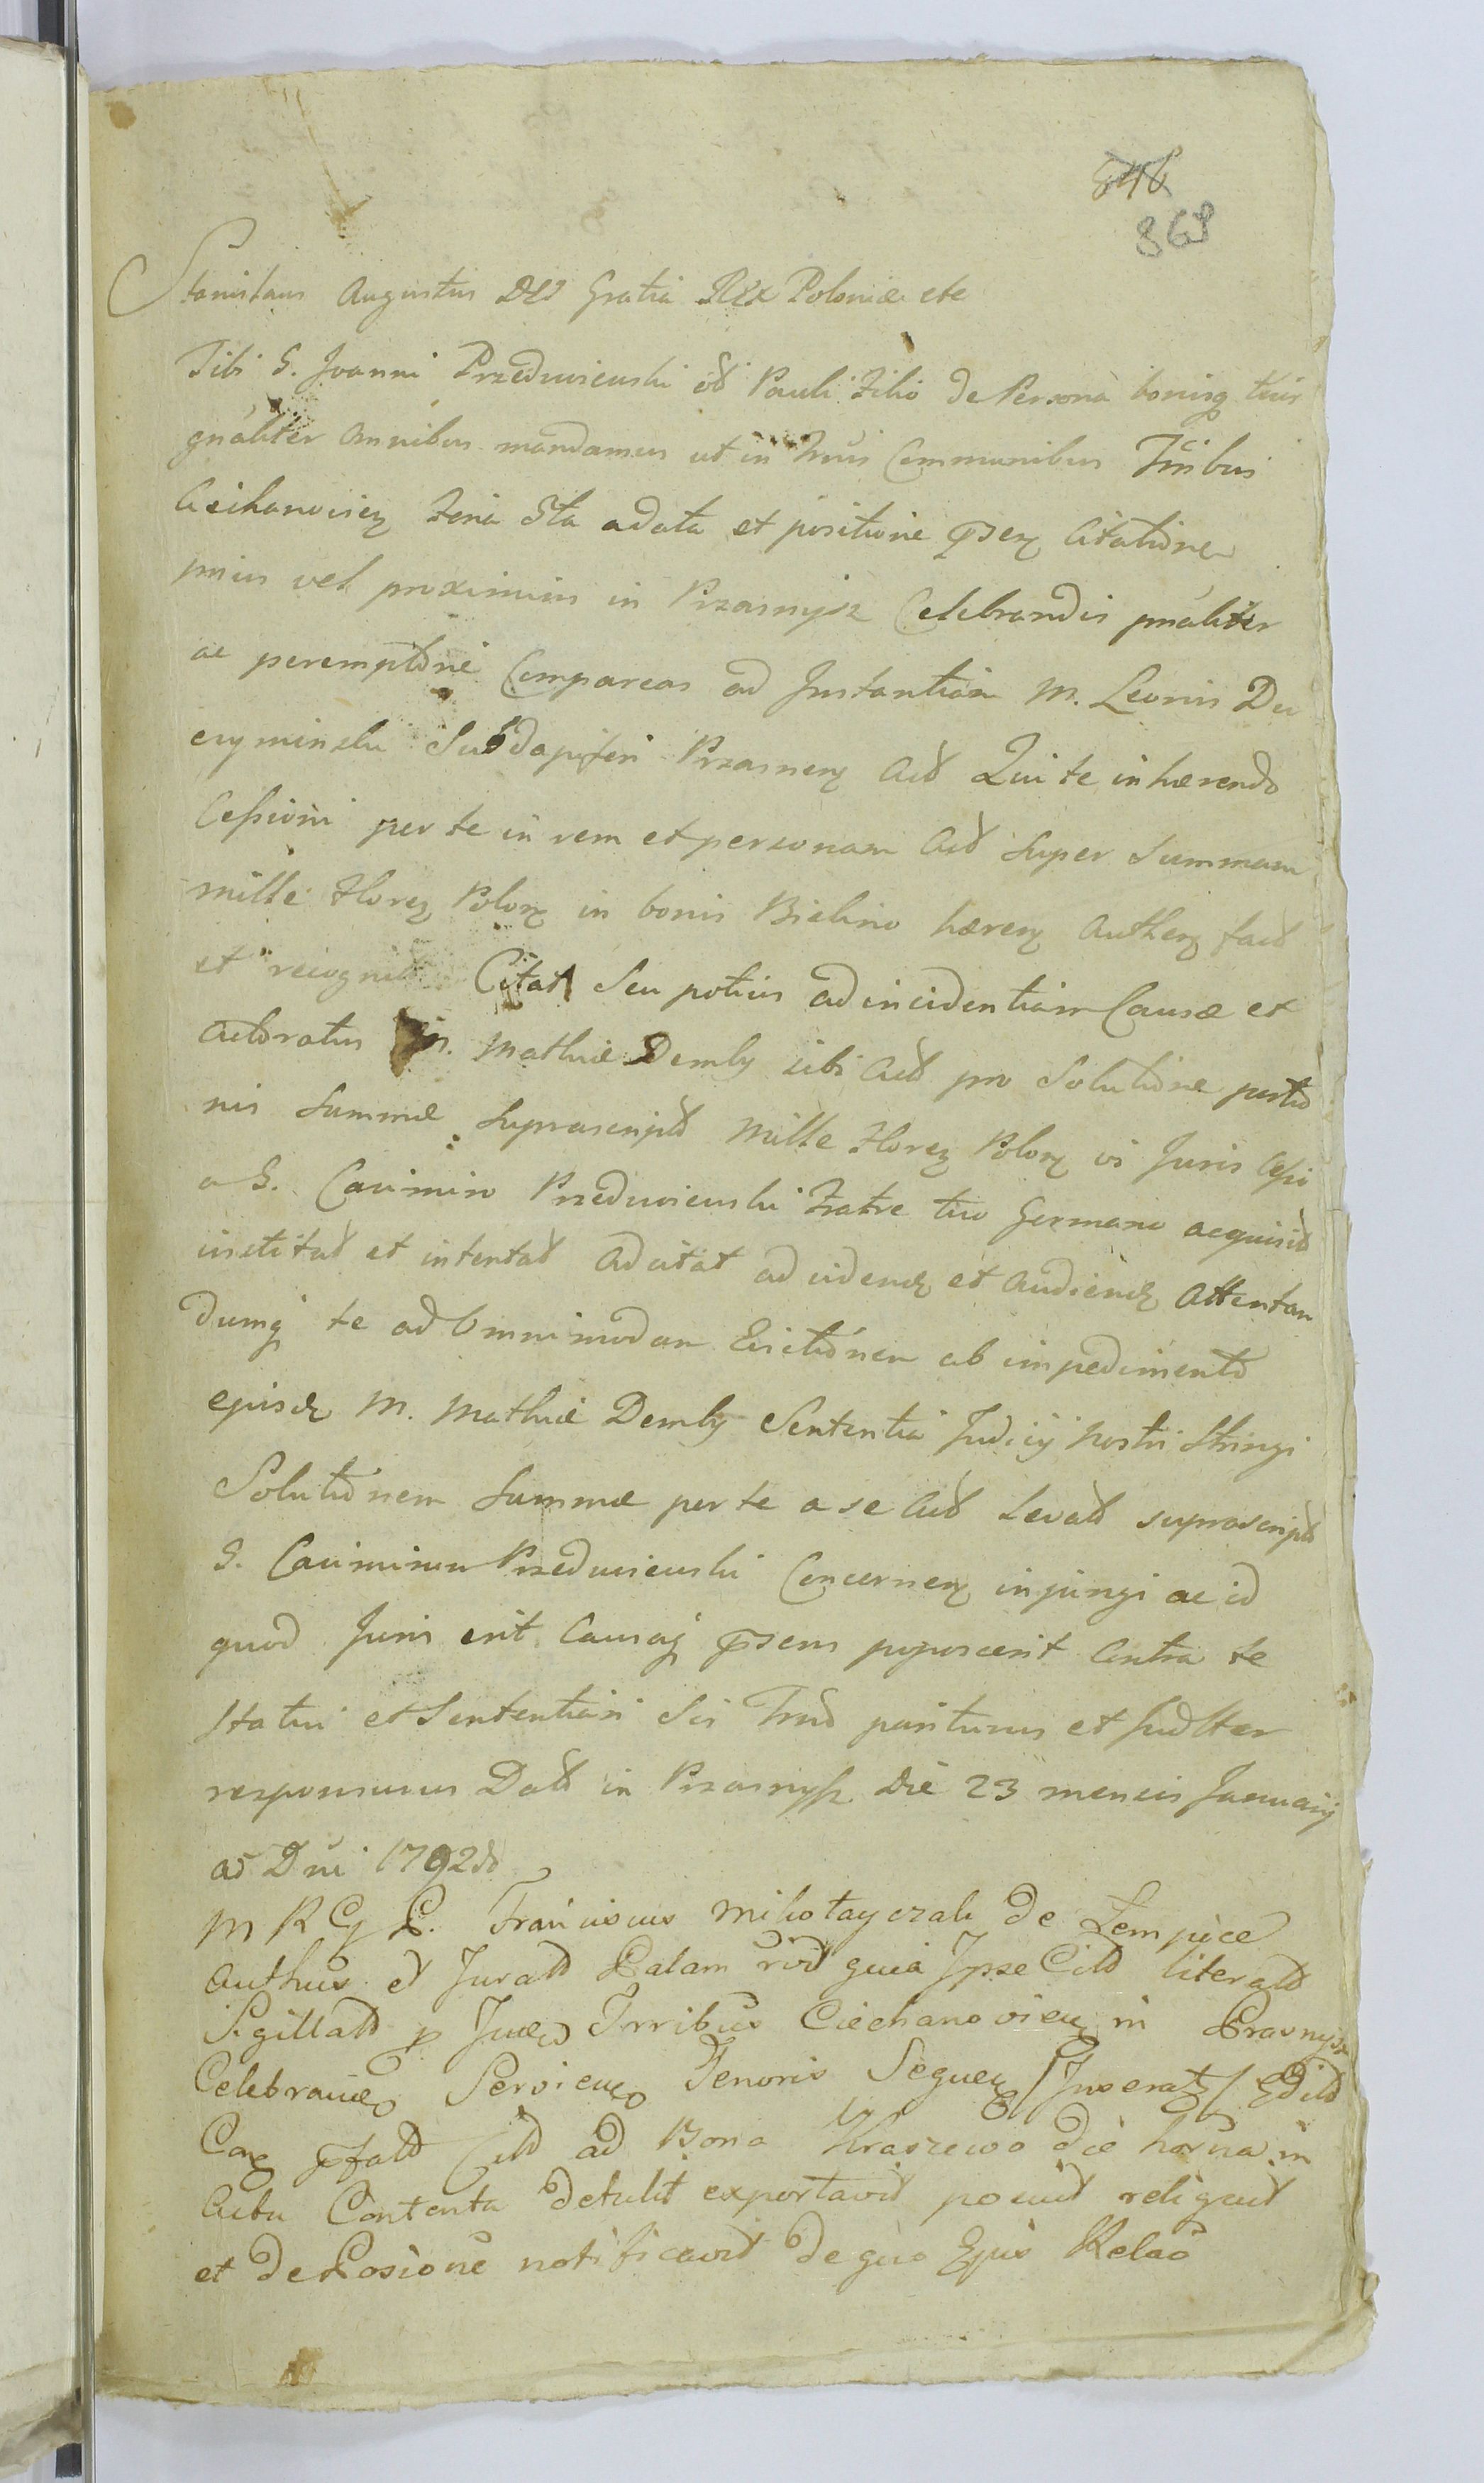 848
869
Stanislaus Augustus DEI Gratia REX Poloniæ etc
Tibi G. Joanni Przedwiewski olð Pauli Filio de Persona bonisq tuis
gnáliter omnibus mandamus ut in Trñis Communibus Tñibus
Ciechanovieñ Feria 6ta a data et positione pñtis Citationis
prius vel proximius in Przasnysz Celebrandis pnáliter
ac peremptorie Compareas ad Instantiam M. Leonis Du
czyminski Subdapiferi Przasneñ Actð Qui te inhærendo
Cessioni per te in rem et personam Actð super Summam
mille Floreñ Poloñ in bonis Bielino hæreñ autheñ factð
et recognitð Citat seu potius ad incidentiam Causæ et
actoratus M. Mathiæ Demby sibi Actð pro Solutione portio
nis Summæ suprascriptð Mille Floreñ Poloñ vi Juris Cessi
a G. Casimiro Przedwiewski Fratre tuo Germano acquisitð
institutð et intentatð adcitat ad videnð et audienð Attentan
dumq te ad Omnimodam Evictionem ab impedimento
ejusð M. Mathiæ Demby Sententia Judicij Nostri Stringi
Solutionem Summæ per te a se Actð Levatð suprascriptð
G. Casimirum Przedwiewski Concerneñ injungi ac id
quod Juris erit Causaq pñsens poposcerit Contra te
statui et Sententiari Sis Trnð pariturus et Judlter
responsurus Datð in Przasnysz die 23 mensis Januarij
aõ Dni 1792dõ
M R C J P. Franciscus Mikołayczak de Łempice
Authus et Juratð Palam rlð quia Ipse Citð literatð
Sigillatð p Jud Trribus Ciechanovieñ in Prasnysz
Celebranð Servienð Tenoris Sequeñ / Inseratr / Editð
Coñ pfatð Citð ad Bona Kraszewo die hðrna in
Actu Contenta detulit exportavit posuit reliquit
et de Posione notificavit de quo Ejus Relaõ